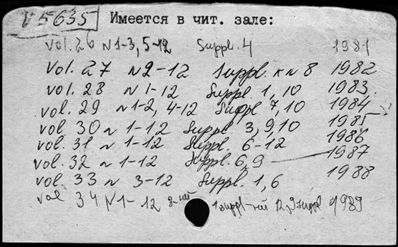 V 5635
Имеется в чит. зале:
Vol. 26 N 1-3, 5-12 Suppl. 4 1981
Vol. 27 N 2-12 Suppl. к N 8 1982
Vol. 28 N 1-12 Suppl 1, 10 1983
vol. 29 N 1-2, 4-12 Suppl 7, 10 1984
vol. 30 N 1-12 Suppl 3, 9, 10 1985
vol. 31 N 1-12 Suppl. 6-12 1986
vol. 32 N 1-12 Suppl. 6, 9 1987
vol. 33 N 3-12 Suppl. 1, 6 1988
vol 34 N 1-12 1 suppl 12, 9 suppl 1989